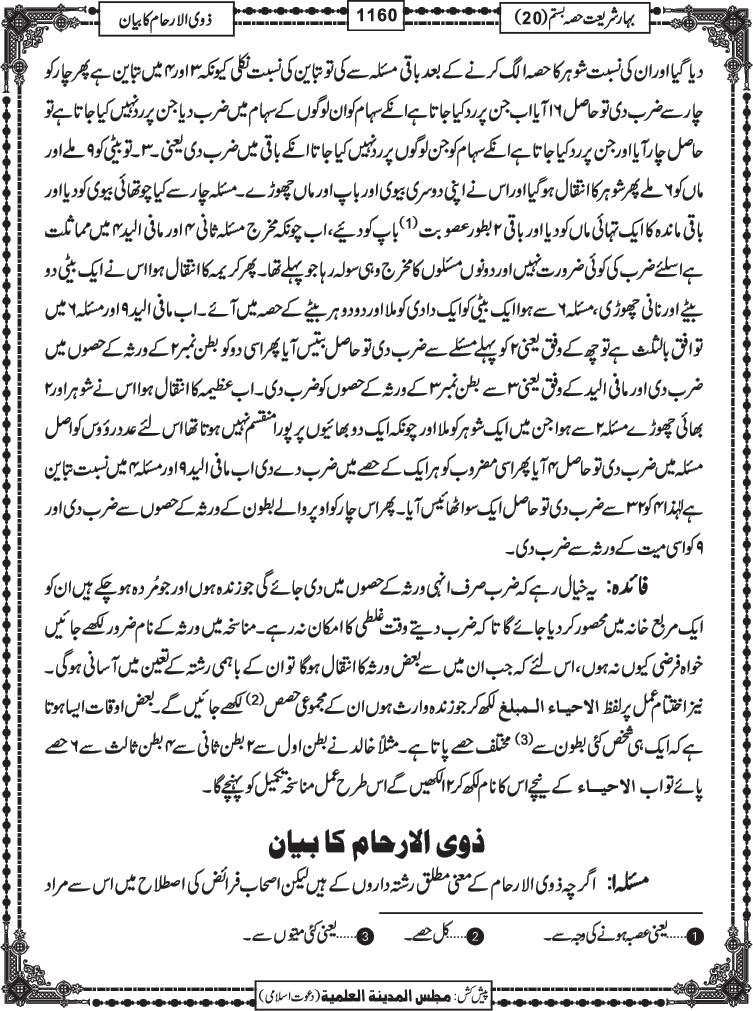 بہار شریعت حصہ بستم (20)
1160
ذوی الارحام کا بیان
دیا گیا اور ان کی نسبت شوہر کا حصہ الگ کرنے کے بعد باقی مسئلہ سے کی تو تباین کی نسبت نکلی کیونکہ ۳ اور ۴ میں تباین ہے پھر چار کو
چار سے ضرب دی تو حاصل ۱۶ آیا اب جن پر رد کیا جاتا ہے انکے سہام کو ان لوگوں کے سہام میں ضرب دیا جن پر رد نہیں کیا جاتا ہے تو
حاصل چار آیا اور جن پر رد کیا جاتا ہے انکے سہام کو جن لوگوں پر رد نہیں کیا جاتا انکے باقی میں ضرب دی یعنی ۳۔ تو بیٹی کو ۹ ملے اور
ماں کو ۶ ملے پھر شوہر کا انتقال ہو گیا اور اس نے اپنی دوسری بیوی اور باپ اور ماں چھوڑے۔ مسئلہ چار سے کیا چوتھائی بیوی کو دیا اور
باقی ماندہ کا ایک تہائی ماں کو دیا اور باقی ۲ بطور عصوبت (1) باپ کو دئیے، اب چونکہ مخرج مسئلہ ثانی ۴ اور مافی الید ۴ میں مماثلت
ہے اسلئے ضرب کی کوئی ضرورت نہیں اور دونوں مسئلوں کا مخرج وہی سولہ رہا جو پہلے تھا۔ پھر کریمہ کا انتقال ہوا اس نے ایک بیٹی دو
بیٹے اور نانی چھوڑی، مسئلہ ۶ سے ہوا ایک بیٹی کو ایک دادی کو ملا اور دو دو ہر بیٹے کے حصہ میں آئے۔ اب مافی الید ۹ اور مسئلہ ۶ میں
توافق بالثلث ہے تو چھ کے وفق یعنی ۲ کو پہلے مسئلے سے ضرب دی تو حاصل بتیس آیا پھر اسی دو کو بطن نمبر ۲ کے ورثہ کے حصوں میں
ضرب دی اور مافی الید کے وفق یعنی ۳ سے بطن نمبر ۳ کے ورثہ کے حصوں کو ضرب دی۔ اب عظیمہ کا انتقال ہوا اس نے شوہر اور ۲
بھائی چھوڑے مسئلہ ۲ سے ہوا جن میں ایک شوہر کو ملا اور چونکہ ایک دو بھائیوں پر پورا منقسم نہیں ہوتا تھا اس لئے عدد رؤوس کو اصل
مسئلہ میں ضرب دی تو حاصل ۴ آیا پھر اسی مضروب کو ہر ایک کے حصے میں ضرب دے دی اب مافی الید ۹ اور مسئلہ ۴ میں نسبت تباین
ہے لہٰذا ۴ کو ۳۲ سے ضرب دی تو حاصل ایک سو اٹھائیس آیا۔ پھر اس چار کو اوپر والے بطون کے ورثہ کے حصوں سے ضرب دی اور
۹ کو اسی میت کے ورثہ سے ضرب دی۔
فائدہ: یہ خیال رہے کہ ضرب صرف انہی ورثہ کے حصوں میں دی جائے گی جو زندہ ہوں اور جو مُردہ ہو چکے ہیں ان کو
ایک مربع خانہ میں محصور کر دیا جائے گا تا کہ ضرب دیتے وقت غلطی کا امکان نہ رہے۔ مناسخہ میں ورثہ کے نام ضرور لکھے جائیں
خواہ فرضی کیوں نہ ہوں، اس لئے کہ جب ان میں سے بعض ورثہ کا انتقال ہوگا تو ان کے باہمی رشتہ کے تعین میں آسانی ہوگی۔
نیز اختتام عمل پر لفظ الاحیاء المبلغ لکھ کر جو زندہ وارث ہوں ان کے مجموعی حصص (2) لکھے جائیں گے۔ بعض اوقات ایسا ہوتا
ہے کہ ایک ہی شخص کئی بطون سے (3) مختلف حصے پاتا ہے۔ مثلاً خالد نے بطن اول سے ۲ بطن ثانی سے ۴ بطن ثالث سے ۶ حصے
پائے تو اب الاحیاء کے نیچے اس کا نام لکھ کر ۱۲ لکھیں گے اس طرح عمل مناسخہ تکمیل کو پہنچے گا۔
ذوی الارحام کا بیان
مسئلہ۱: اگرچہ ذوی الارحام کے معنی مطلق رشتہ داروں کے ہیں لیکن اصحاب فرائض کی اصطلاح میں اس سے مراد
1 ..... یعنی عصبہ ہونے کی وجہ سے۔ 2 ..... کل حصے۔ 3 ..... یعنی کئی میتوں سے۔
پیش کش: مجلس المدینة العلمیة (دعوت اسلامی)